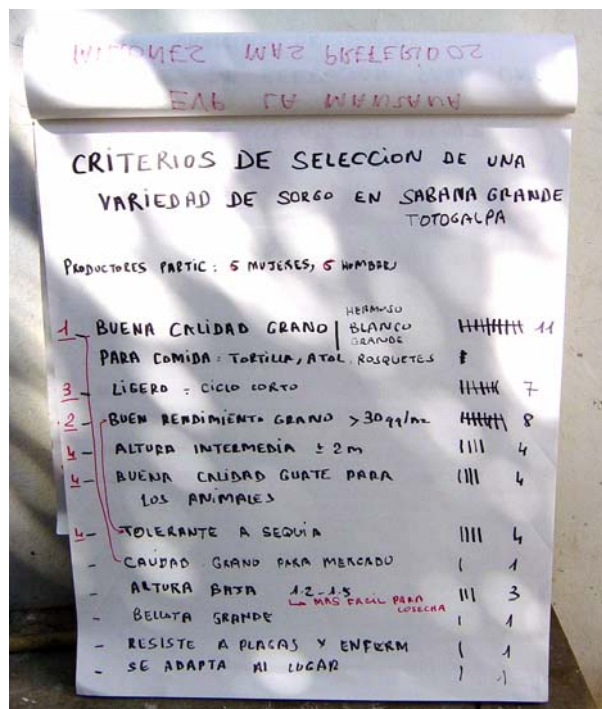 MILLONES MAS PREFERIDOS
EVA LA MANSANA
CRITERIOS DE SELECCION DE UNA
VARIEDAD DE SORGO EN SABANA GRANDE
TOTOGALPA
PRODUCTORES PARTIC: 5 MUJERES, 6 HOMBRES
1 - BUENA CALIDAD GRANO | HERMOSO
BLANCO
GRANDE
11
PARA COMIDA: TORTILLA, ATOL, ROSQUETES
3 - LIGERO = CICLO CORTO 7
2 - BUEN RENDIMIENTO GRANO > 30qq/mz 8
4 - ALTURA INTERMEDIA ± 2m 4
4 - BUENA CALIDAD GUATE PARA 4
LOS ANIMALES
4 - TOLERANTE A SEQUIA 4
- CALIDAD GRANO PARA MERCADO 1
- ALTURA BAJA 1.2-1.5 3
↳ MAS FACIL PARA
COSECHA
- BELLOTA GRANDE 1
- RESISTE A PLAGAS Y ENFERM 1
- SE ADAPTA AL LUGAR 1